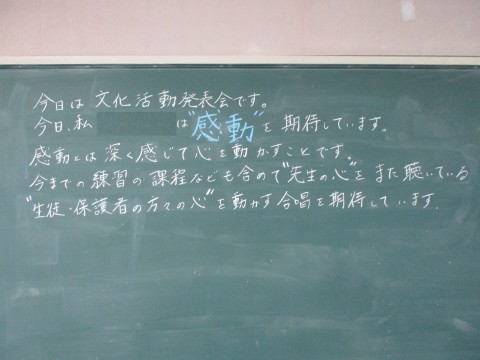 今日は文化活動発表会です。
今日、私は"感動"を期待しています。
感動とは深く感じて心を動かすことです。
今までの練習の課程なども含めて"先生の心"をまた聴いている
"生徒・保護者の方々の心"を動かす合唱を期待しています。